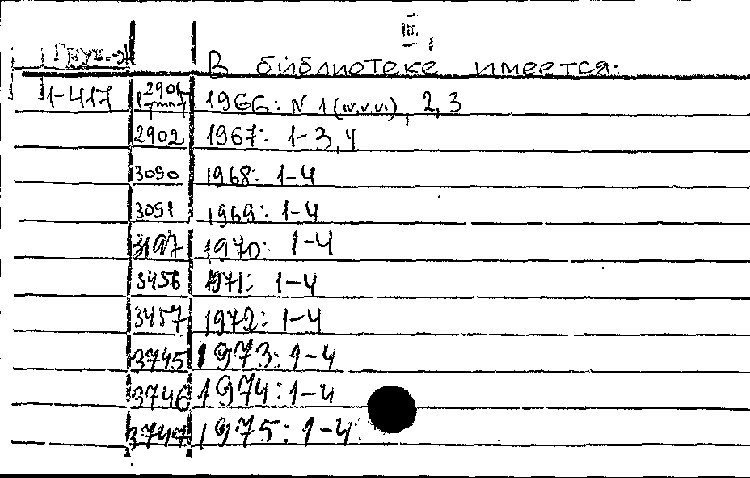 III.
Груз.
В библиотеке имеется:
1-417 2901 1966: N 1 (IV.V.VI.), 2, 3
2902 1967: 1-3, 4
3090 1968: 1-4
3091 1969: 1-4
3197 1970: 1-4
3456 1971: 1-4
3457 1972: 1-4
3745 1973: 1-4
3746 1974: 1-4
3747 1975: 1-4